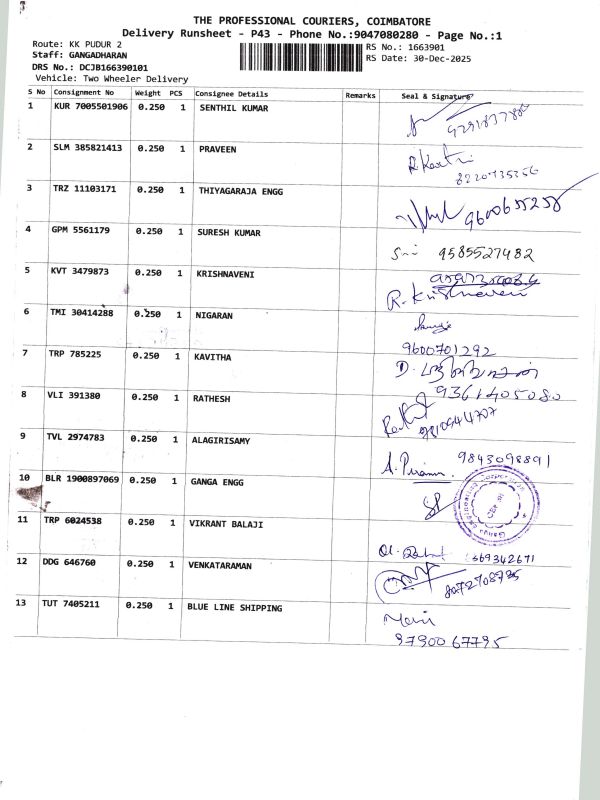 THE PROFESSIONAL COURIERS, COIMBATORE
Delivery Runsheet - P43 - Phone No.:9047080280 - Page No.:1
Route: KK PUDUR 2
RS No.: 1663901
Staff: GANGADHARAN
RS Date: 30-Dec-2025
DRS No.: DCJB166390101
Vehicle: Two Wheeler Delivery
S No Consignment No Weight PCS Consignee Details Remarks Seal & Signature
1 KUR 7005501906 0.250 1 SENTHIL KUMAR
2 SLM 385821413 0.250 1 PRAVEEN
8220735256
3 TRZ 11103171 0.250 1 THIYAGARAJA ENGG
9600655258
4 GPM 5561179 0.250 1 SURESH KUMAR
9585527482
5 KVT 3479873 0.250 1 KRISHNAVENI
R. Krishnaveni
6 TMI 30414288 0.250 1 NIGARAN
9600701292
7 TRP 785225 0.250 1 KAVITHA
9361405080
8 VLI 391380 0.250 1 RATHESH
9 TVL 2974783 0.250 1 ALAGIRISAMY
9843098891
10 BLR 1900897069 0.250 1 GANGA ENGG
11 TRP 6024538 0.250 1 VIKRANT BALAJI
12 DDG 646760 0.250 1 VENKATARAMAN
8072708795
13 TUT 7405211 0.250 1 BLUE LINE SHIPPING
Mani
9790067795